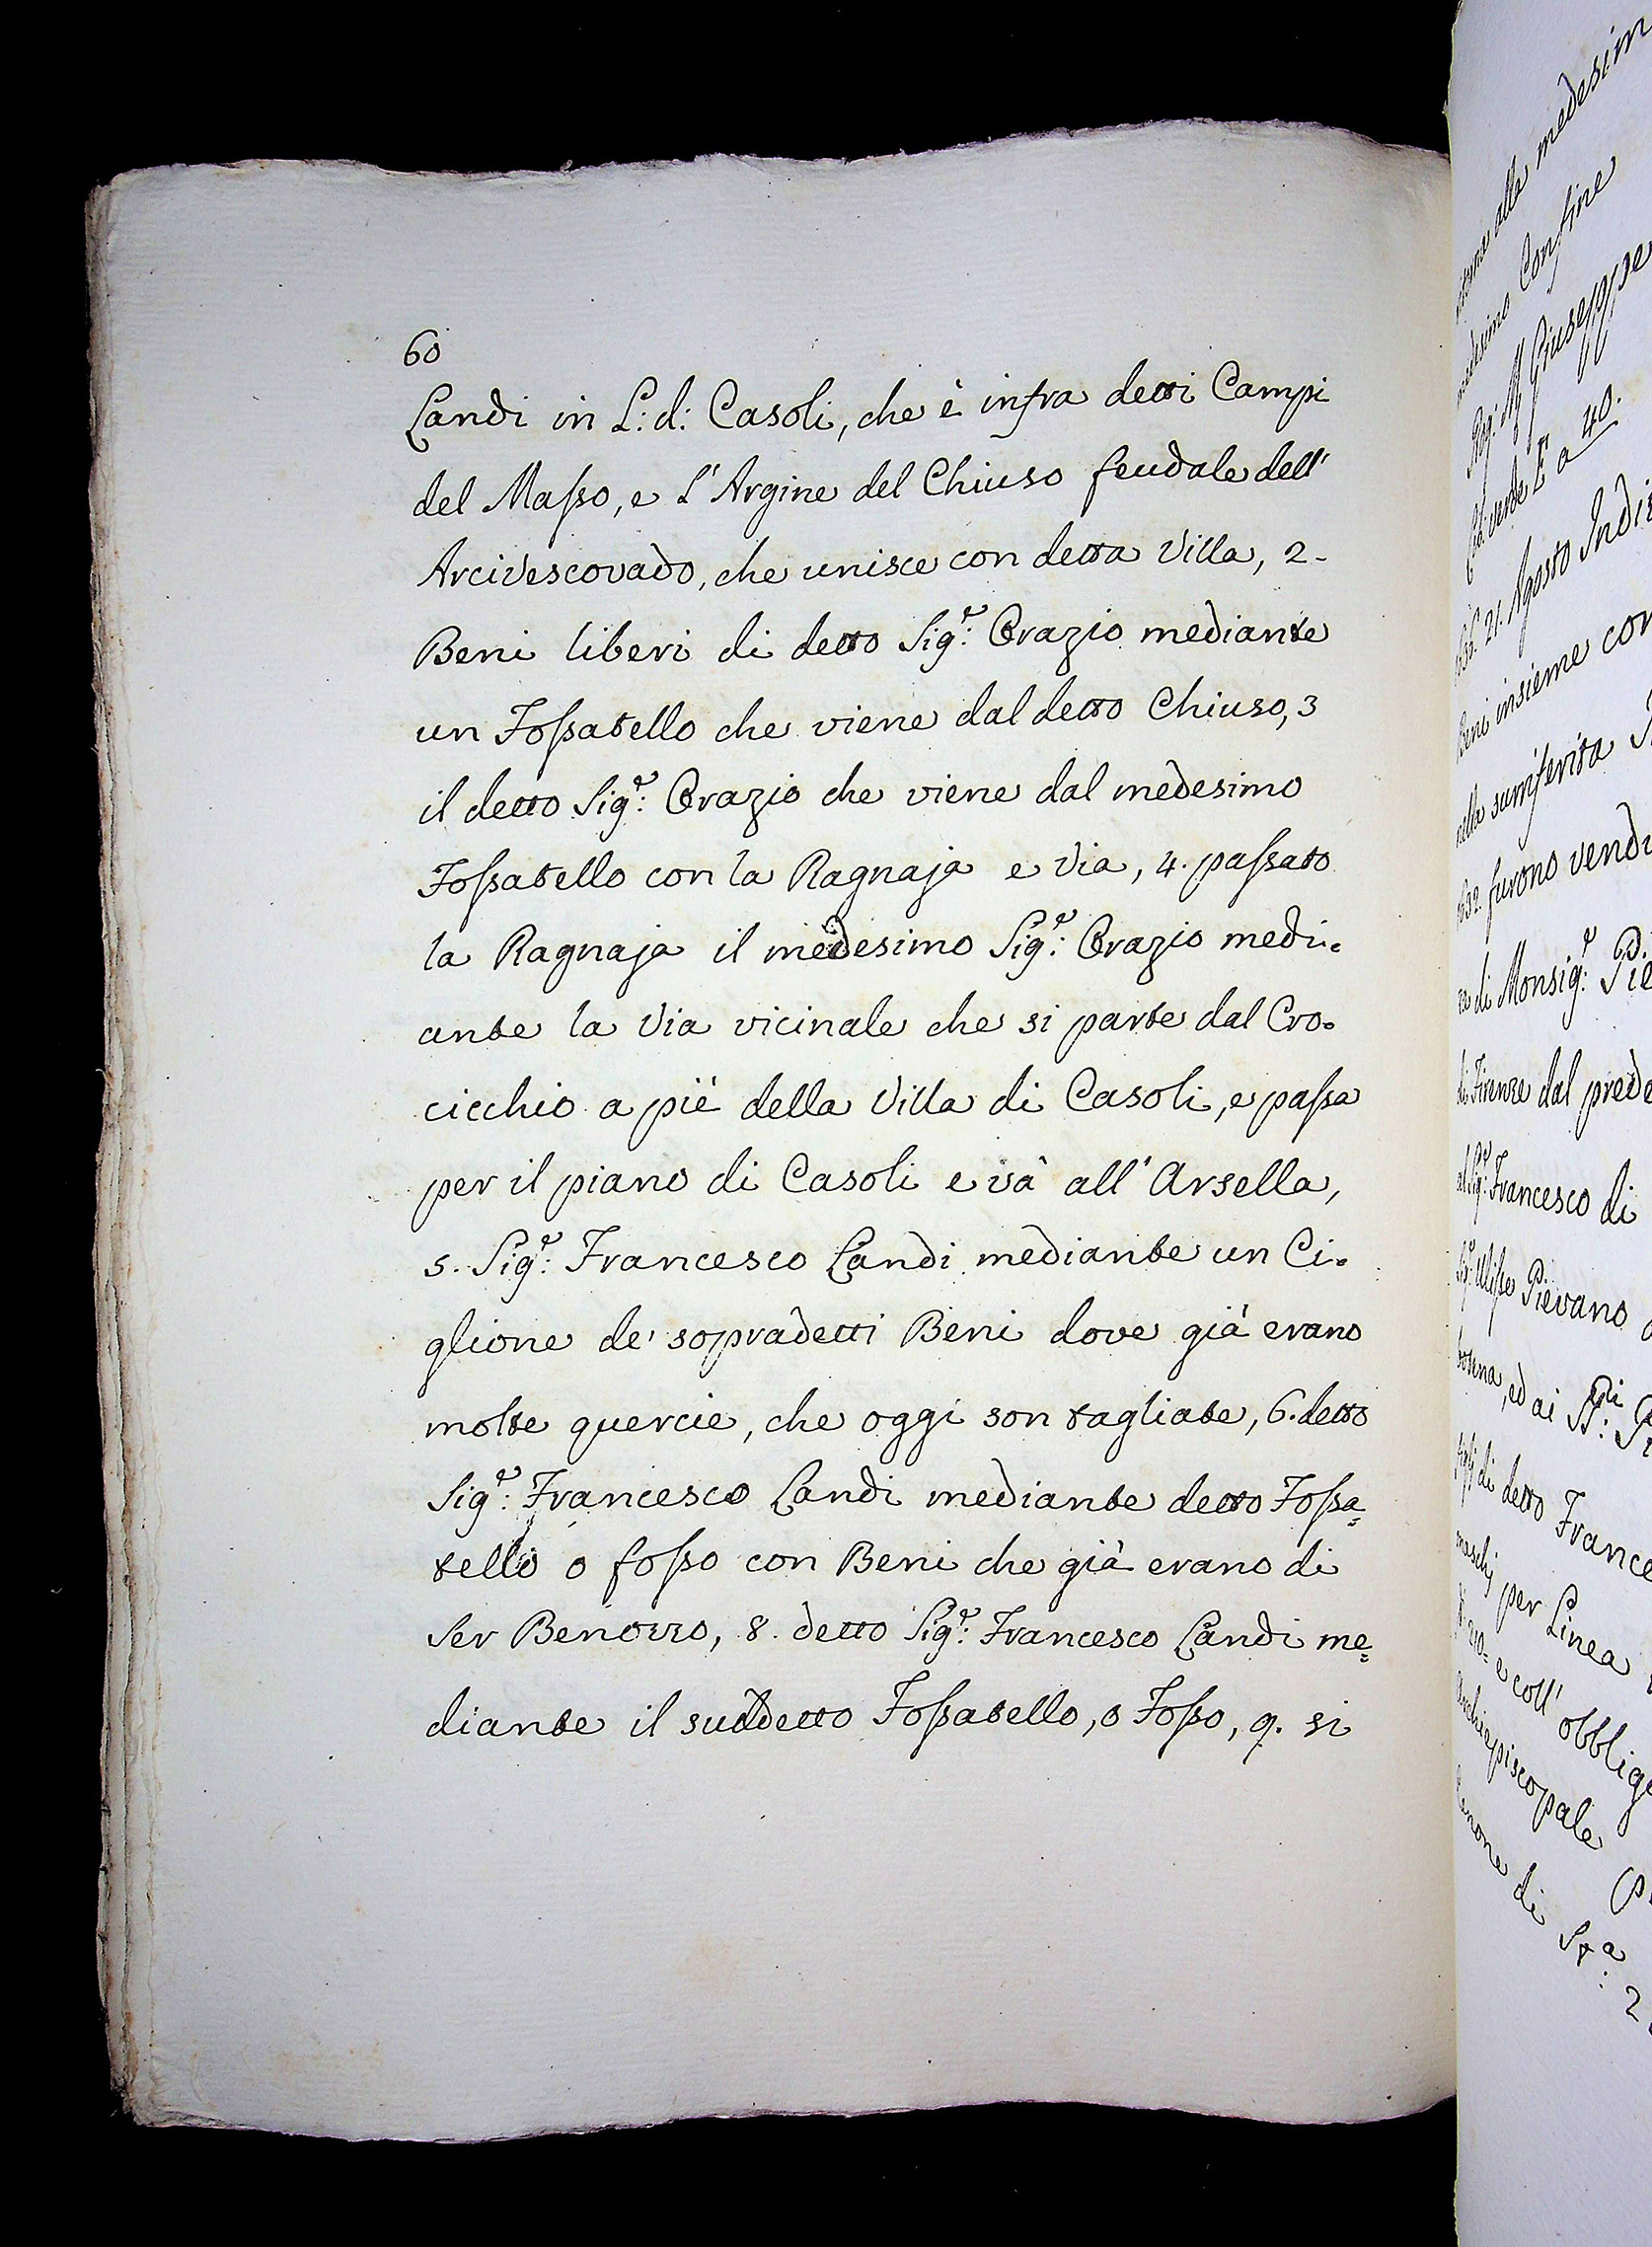 60
Landi in L: d: Casoli, che è infra detti Campi
del Masso, e l'Argine del Chiuso feudale dell'
Arcivescovado, che unisce con detta Villa, 2-
Beni liberi di detto Sig.e: Orazio mediante
un Fossatello che viene dal detto Chiuso, 3
il detto Sig.e: Orazio che viene dal medesimo
Fossatello con la Ragnaja e Via, 4. passato
la Ragnaja il medesimo Sig.e: Orazio medi=
ante la Via vicinale che si parte dal Cro=
cicchio a piè della Villa di Casoli, e passa
per il piano di Casoli e và all'Arsella,
5. Sig.e: Francesco Landi mediante un Ci=
glione de' sopradetti Beni dove già erano
molte quercie, che oggi son tagliate, 6. detto
Sig.e: Francesco Landi mediante detto Fossa=
tello o fosso con Beni che già erano di
Ser Benozzo, 8. detto Sig.e: Francesco Landi me=
diante il suddetto Fossatello, o Fosso, 9. si
alla medesim
medesimo Confine
Giuseppe
verde E a 40.
21. Agosto Indi
Beni insieme con
nella surriferita
furono vendu
di Monsig.e: Pie
di Firenze dal prede
al Sig.e: Francesco di
Ulisse Pievano
ed ai SS.ri:
figli di detto France
maschj per Linea
e coll' obblig
Archiepiscopale
Canone di St.a: 2